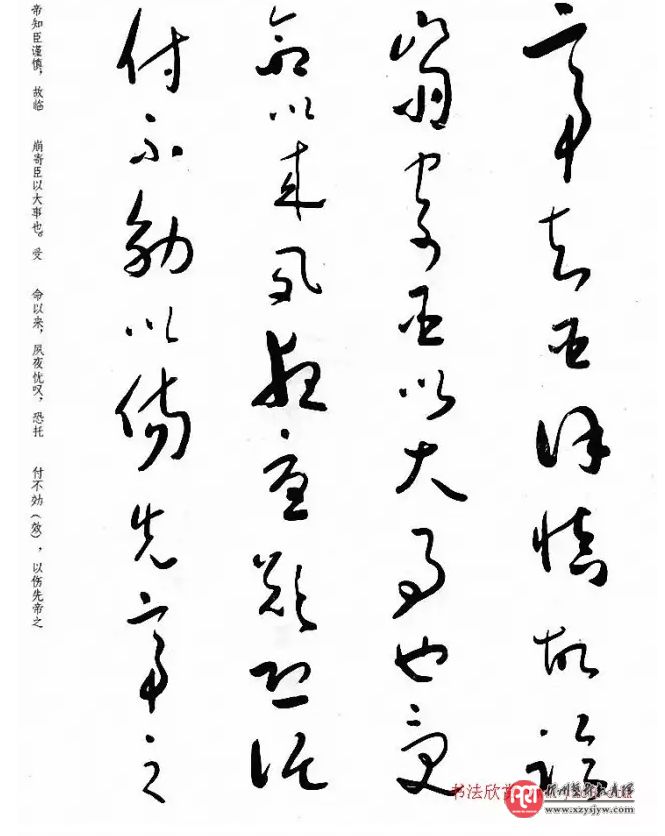 帝知臣谨慎故临
崩寄臣以大事也受
命以来夙夜忧叹恐托
付不効以伤先帝之
帝知臣谨慎，故临 崩寄臣以大事也。受 命以来，夙夜忧叹，恐托 付不効（效），以伤先帝之
书法欣赏
www.xzysjyw.com